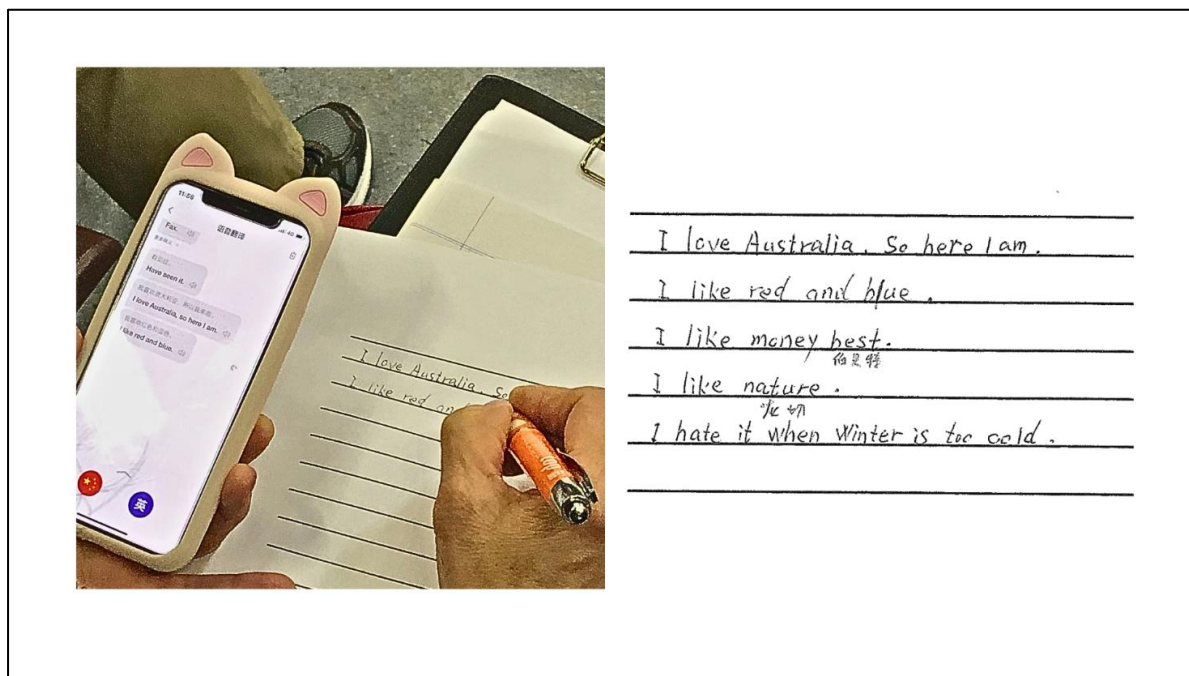 11:56
语音翻译
Fax.
Have seen it.
我喜欢澳大利亚，所以我来啦。
I love Australia, so here I am.
我喜欢红色和蓝色。
I like red and blue.
英
I love Australia. So
I like red and
I love Australia. So here I am.
I like red and blue.
I like money best.
I like nature.
I hate it when Winter is too cold.